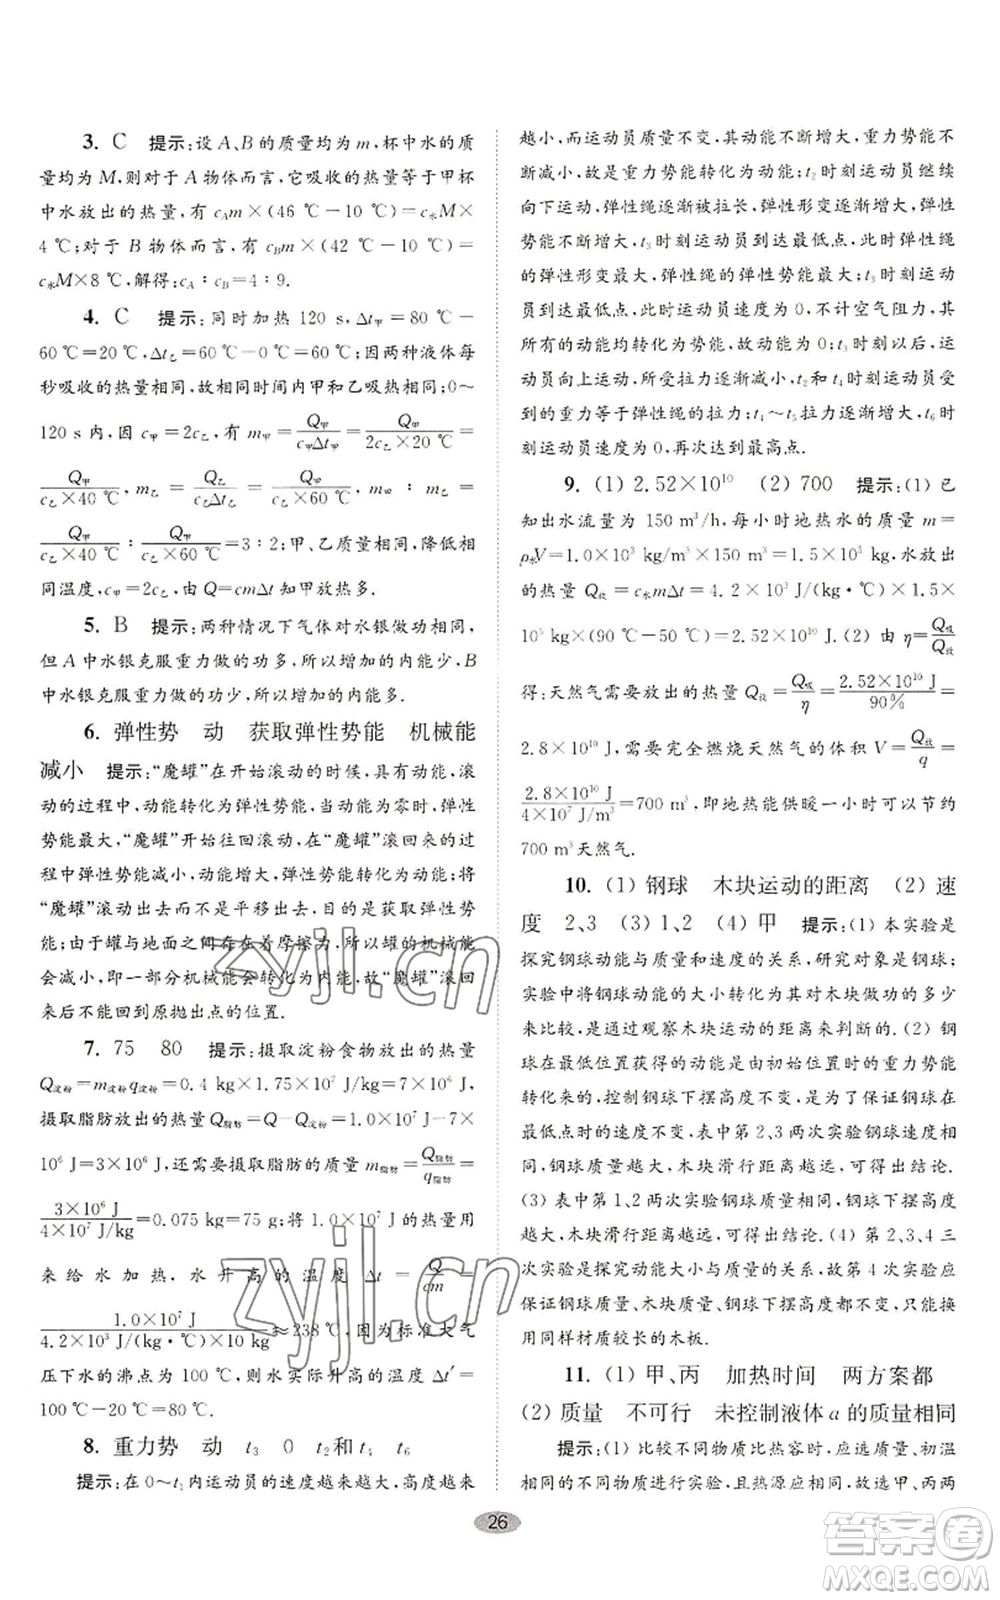 3. C 提示:设 A、B 的质量均为 m,杯中水的质
量均为 M,则对于 A 物体而言,它吸收的热量等于甲杯
中水放出的热量,有 c_A m×(46 ℃-10 ℃)=c_水M×
4 ℃;对于 B 物体而言,有 c_B m×(42 ℃-10 ℃)=
c_水M×8 ℃,解得:c_A∶c_B=4∶9.
4. C 提示:同时加热 120 s,Δt_甲=80 ℃-
60 ℃=20 ℃,Δt_乙=60 ℃-0 ℃=60 ℃;因两种液体每
秒吸收的热量相同,故相同时间内甲和乙吸热相同;0~
120 s 内,因 c_甲=2c_乙,有 m_甲=Q_甲/(c_甲Δt_甲)=Q_甲/(2c_乙×20 ℃)
=Q_甲/(c_乙×40 ℃),m_乙=Q_乙/(c_乙Δt_乙)=Q_乙/(c_乙×60 ℃),m_甲∶m_乙=
Q_甲/(c_乙×40 ℃)∶Q_乙/(c_乙×60 ℃)=3∶2;甲、乙质量相同,降低相
同温度,c_甲=2c_乙,Q=cmΔt 知甲放热多.
5. B 提示:两种情况下气体对水银做功相同,
但 A 中水银克服重力做的功多,所以增加的内能少,B
中水银克服重力做的功少,所以增加的内能多.
6. 弹性势 动 获取弹性势能 机械能
减小 提示:“魔罐”在开始滚动的时候,具有动能,滚
动的过程中,动能转化为弹性势能,当动能为零时,弹性
势能最大,“魔罐”开始往回滚动,在“魔罐”滚回来的过
程中弹性势能减小,动能增大,最终静止时动能为零;将
“魔罐”滚动出去而不是平移出去,目的是获取弹性势
能;由于罐与地面之间存在着摩擦,故罐的机械能
会减小,即一部分机械能会转化为内能,故“魔罐”滚回
来后不能回到原抛出点的位置.
7. 75 80 提示:摄取淀粉食物放出的热量
Q_淀粉=m_淀粉q_淀粉=0.4 kg×1.75×10⁷ J/kg=7×10⁶ J,
摄取脂肪放出的热量 Q_脂肪=Q-Q_淀粉=1.0×10⁷ J-7×
10⁶ J=3×10⁶ J,还需要摄取脂肪的质量 m_脂肪=Q_脂肪/q_脂肪=
(3×10⁶ J)/(4×10⁷ J/kg)=0.075 kg=75 g;将 1.0×10⁷ J 的热量用
来给水加热,水升高的温度 Δt=Q/cm=
(1.0×10⁷ J)/(4.2×10³ J/(kg·℃)×10 kg)≈238 ℃;因为标准大气
压下水的沸点为 100 ℃,则水实际升高的温度 Δt′=
100 ℃-20 ℃=80 ℃.
8. 重力势 动 t₃ 0 t₂和t₄ t₆
提示:在 0~t₁内运动员的速度越来越大,高度越来
越小,而运动员质量不变,其动能不断增大,重力势能不
断减小,故是重力势能转化为动能;t₂时刻运动员继续
向下运动,弹性绳逐渐被拉长,弹性形变逐渐增大,弹性
势能不断增大,t₃时刻运动员达到最低点,此时弹性绳
的弹性形变最大,弹性绳的弹性势能最大;t₃时刻运动
员到达最低点,此时运动员速度为 0,不计空气阻力,其
所有的动能均转化为弹性势能,故动能为 0;t₃时刻以后,运
动员向上运动,所受拉力逐渐减小,t₂和t₄时刻运动员受
到的重力等于弹性绳的拉力;t₄~t₅拉力逐渐增大,t₆时
刻运动员速度为 0,再次达到最高点.
9. (1) 2.52×10¹⁰ (2) 700 提示:(1) 已
知出水流量为 150 m³/h,每小时地热水的质量 m=
ρ_水V=1.0×10³ kg/m³×150 m³=1.5×10⁵ kg,水放出
的热量 Q_放=c_水mΔt=4.2×10³ J/(kg·℃)×1.5×
10⁵ kg×(90 ℃-50 ℃)=2.52×10¹⁰ J.(2) 由 η=Q_吸/Q_放
得:天然气需要放出的热量 Q_放=Q_吸/η=(2.52×10¹⁰ J)/90%=
2.8×10¹⁰ J,需要完全燃烧天然气的体积 V=Q_放/q=
(2.8×10¹⁰ J)/(4×10⁷ J/m³)=700 m³,即地热能供暖一小时可以节约
700 m³天然气.
10. (1) 钢球 木块运动的距离 (2) 速
度 2、3 (3) 1、2 (4) 甲 提示:(1) 本实验是
探究钢球动能与质量和速度的关系,研究对象是钢球;
实验中将钢球动能的大小转化为其对木块做功的多少
来比较,是通过观察木块运动的距离来判断的.(2) 钢
球在最低位置获得的动能是由最高点处的重力势能转
化来的,控制钢球摆动高度不变,是为了保证钢球在
最低点时的速度不变,表中2、3两次实验钢球速度相
同,钢球质量越大,木块滑行距离越远,可得出结论.
(3) 表中1、2两次实验钢球质量相同,钢球下摆高度
越大,速度越大,木块滑行距离越远,可得出结论.(4) 第2、3、4三
次实验是探究动能大小与质量的关系,故第4次实验应
保证钢球质量、木块质量、钢球下摆高度都不变,只能
换用同样材质较长的木板.
11. (1) 甲、丙 加热时间 两方案都
(2) 质量 不可行 未控制液体 a 的质量相同
提示:(1) 比较不同物质比热容时,应选质量、初温
相同的不同物质进行实验,且热源应相同,故选甲、丙两
26
zyjl.cn
zyjl.cn
答案圈
MXQE.COM